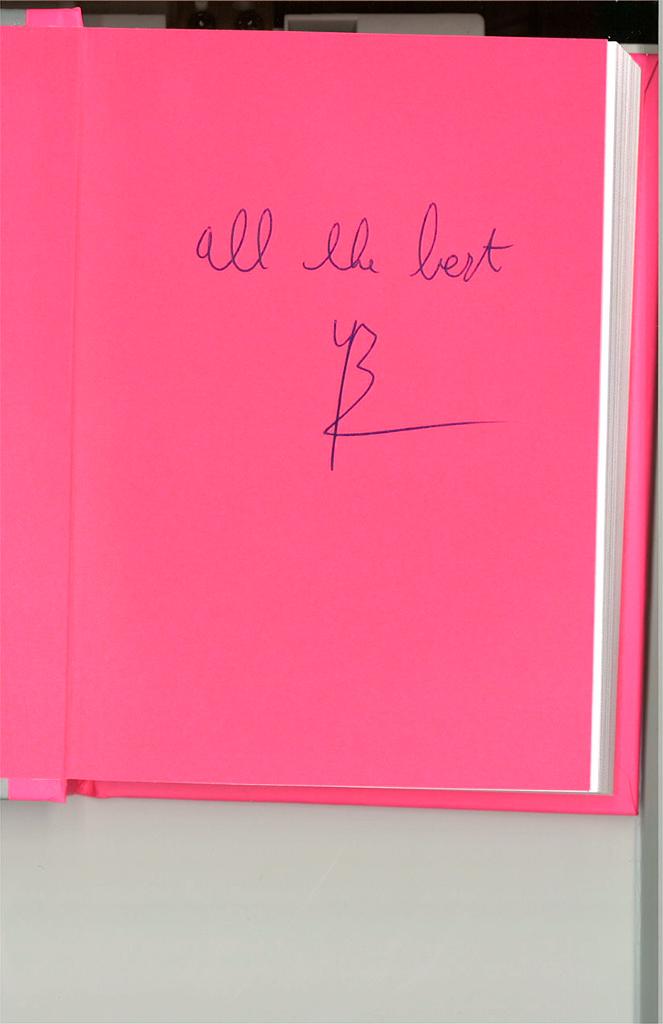 all the best